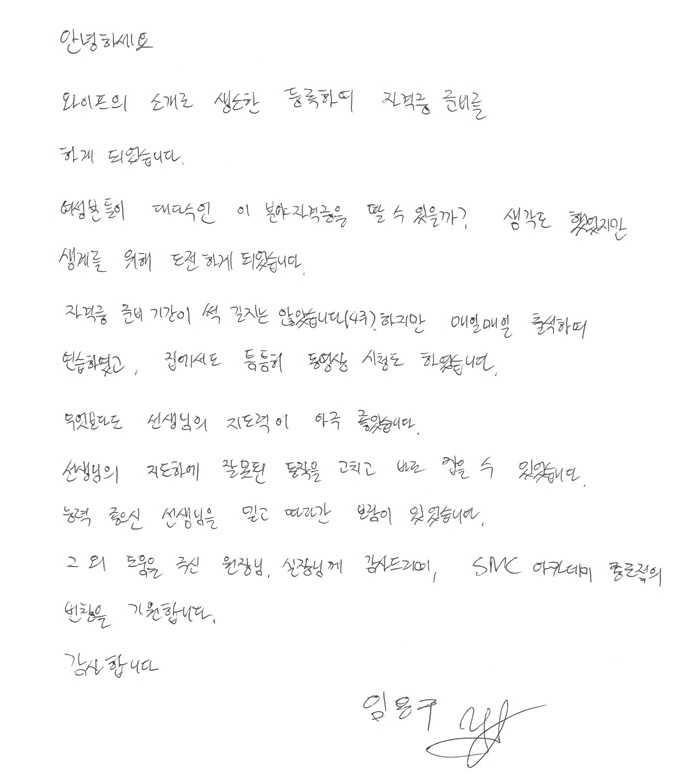 안녕하세요
와이프의 소개로 생소한 등록하여 자격증 준비를
하게 되었습니다.
여성분들이 대다수인 이 분야자격증을 딸 수 있을까? 생각도 했었지만
생계를 위해 도전하게 되었습니다.
자격증 준비 기간이 썩 길지는 않았습니다(4주). 하지만 매일매일 출석하여
연습하였고, 집에서도 틈틈히 동영상 시청도 하였습니다.
무엇보다도 선생님의 지도력이 아주 좋았습니다.
선생님의 지도하에 잘못된 동작을 고치고 바로 잡을 수 있었습니다.
능력 좋으신 선생님을 믿고 따라간 보람이 있었습니다.
그 외 도움을 주신 원장님, 실장님께 감사드리며, SMC 아카데미 종로점의
번창을 기원합니다.
감사합니다
임용구